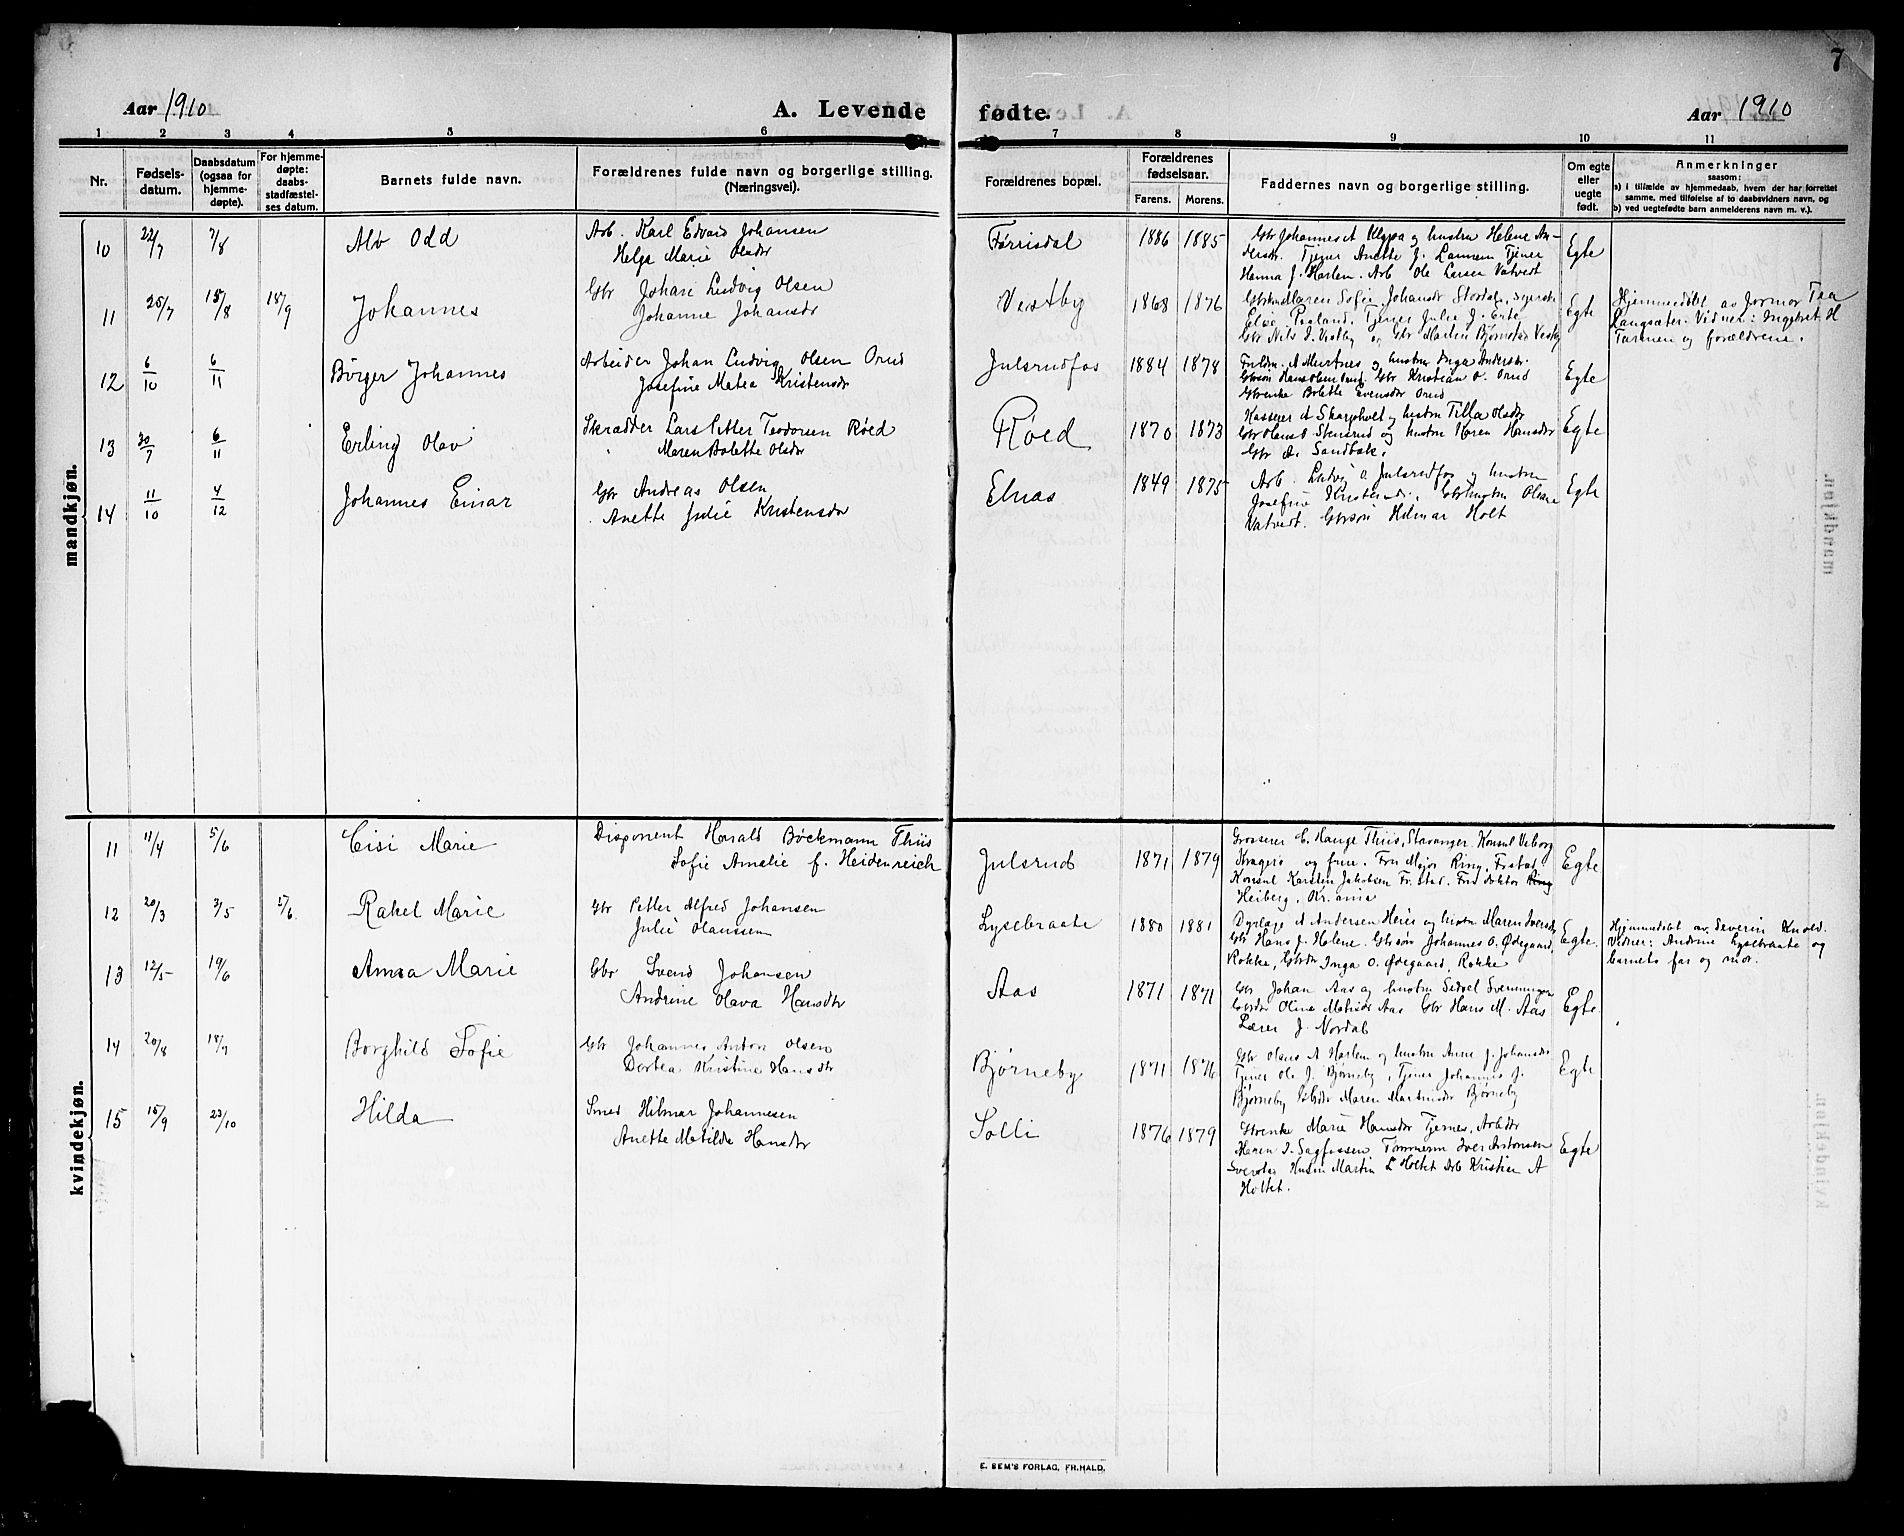 7
Aar 1910
A. Levende fødte.
Aar 1910
1 2 3 4 5 6 7 8 9 10 11
Nr.
Fødsels-
datum.
Daabsdatum
(ogsaa for
hjemme-
døpte).
For hjemme-
døpte:
daabs-
stadfæstel-
ses datum.
Barnets fulde navn.
Forældrenes fulde navn og borgerlige stilling.
(Næringsvei).
Forældrenes bopæl.
Forældrenes
fødselsaar.
Farens. Morens.
Faddernes navn og borgerlige stilling.
Om egte
eller
uegte
født.
Anmerkninger
saasom:
a) i tilfælde av hjemmedaab, hvem der har forrettet
samme, med tilføielse af to daabsvidners navn, og
b) ved uegtefødte barn anmelderens navn m. v.).
mandkjøn.
10 22/7 7/8 Alv Odd
Arb. Karl Edvard Johansen
Helga Marie Olsdtr
Førrisdal 1886 1885
Gbr Johannes et Klypa og hustru Helene An-
dersdr. Tjener Anette J. Lannem Tjener
Hanna J. Harlem. Arb Ole Larsen Vatvedt
Egte
11 25/7 15/8 18/9 Johannes
Gbr Johan Ludvig Olsen
Johanne Johansdr
Vestby 1868 1876
Maren Sofie Johansdr Stordal,
Tjener Julie J. Erte
Gbr Nils J. Vestby og Gbr Martin Bjørnstad Vestby
Egte
Hjemmedøbt av Jormor Tea
Langsæter. Vidner: Ingebret H
Tarmen og forældrene.
12 6/10 6/11 Børger Johannes
Arbeider Johan Ludvig Olsen Orud
Josefine Matea Kristensdr
Julsrudfos 1884 1878
Fuldm. A Mertnes og hustru Inga Andersdr.
Gbrsøn Hans Olsen Orud. Gbr Kristian O. Orud
Gbrenke Bolette Evensdr Orud
Egte
13 30/7 6/11 Erling Olav
Skrædder Lars Petter Teodorsen Røed
Maren Bolette Olsdr
Røed 1870 1873
Kasserer A Skarpholt og hustru Tilla Olsdr
Gbr Olaus O Stensrud og hustru Karen Hansdr
Gbr A. Sandbæk.
Egte
14 11/10 4/12 Johannes Einar
Gbr Andreas Olsen
Anette Julie Kristensdr
Elnas 1849 1875
Arb. Ludvig O Julsrudfos og hustru
Josefine Kristensd., Gbrhustru Olava
Vatvedt. Gbrsøn Hilmar Holt
Egte
kvindekjøn.
11 11/4 5/6 Cisi Marie
Disponent Harald Bøckmann Thiis
Sofie Amelie f. Heidenreich
Julsrud 1871 1879
Grosserer C. Hauge Thiis, Stavanger, Konsul Viborg
Kragerø og frue. Fru Major Ring, Fr.stad
Konsul Karsten Jakobsen Fr.stad. Fru doktor Ring
Heiberg, Kr.ania
Egte
12 20/3 3/5 5/6 Rakel Marie
Gbr Petter Alfred Johansen
Julie Olaussen
Lysebraate 1880 1881
Dyrlæge A Andersen Heier og hustru Maren Iversdr
Gbr Hans J. Helene. Gbrsøn Johannes O. Ødegaard,
Rokke, Gbrdtr Inga O. Ødegaard, Rokke
Egte
Hjemmedøbt av Severin Knold.
Vidner: Andrine Lysebraate og
barnets far og mor.
13 12/5 19/6 Anna Marie
Gbr Svend Johansen
Andrine Olava Hansdtr
Aas 1871 1871
Gbr Johan Aas og hustru Sidsel Svenningsen
Gbrdtr Oline Matisdr Aas Gbr Hans M. Aas
Lærer J. Nordal
Egte
14 20/8 18/9 Borghild Sofie
Gbr Johannes Anton Olsen
Dortea Kristine Hansdtr
Bjørneby 1871 1876
Gbr Olaus A Harlem og hustru Anne J. Johansdr
Tjener Ole J. Bjørneby, Tjener Johannes J.
Bjørneby Gbrdtr Maren Martinsdtr Bjørneby
Egte
15 15/9 23/10 Hilda
Smed Hilmar Johannesen
Anette Matilde Hansdtr
Solli 1876 1879
Gbrenke Marie Hansdtr Tjernes, Arbdtr
Maren J. Sagfossen Tømmerm Iver Antonsen
Husm Martin L Holtet Arb Kristian A
Holtet.
Egte
E. SEM'S FORLAG, FR.HALD.